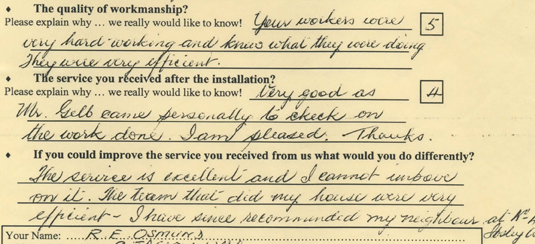 ♦ The quality of workmanship?
Please explain why ... we really would like to know! Your workers were 5
very hard-working and knew what they were doing
They were very efficient.
♦ The service you received after the installation?
Please explain why ... we really would like to know! Very good as 4
Mr. Gelb came personally to check on
the work done. I am pleased. Thanks.
♦ If you could improve the service you received from us what would you do differently?
The service is excellent and I cannot imbove
on it. The team that did my house were very
efficient - I have since recommended my neighbour at
Your Name: R.E. OSMUNS